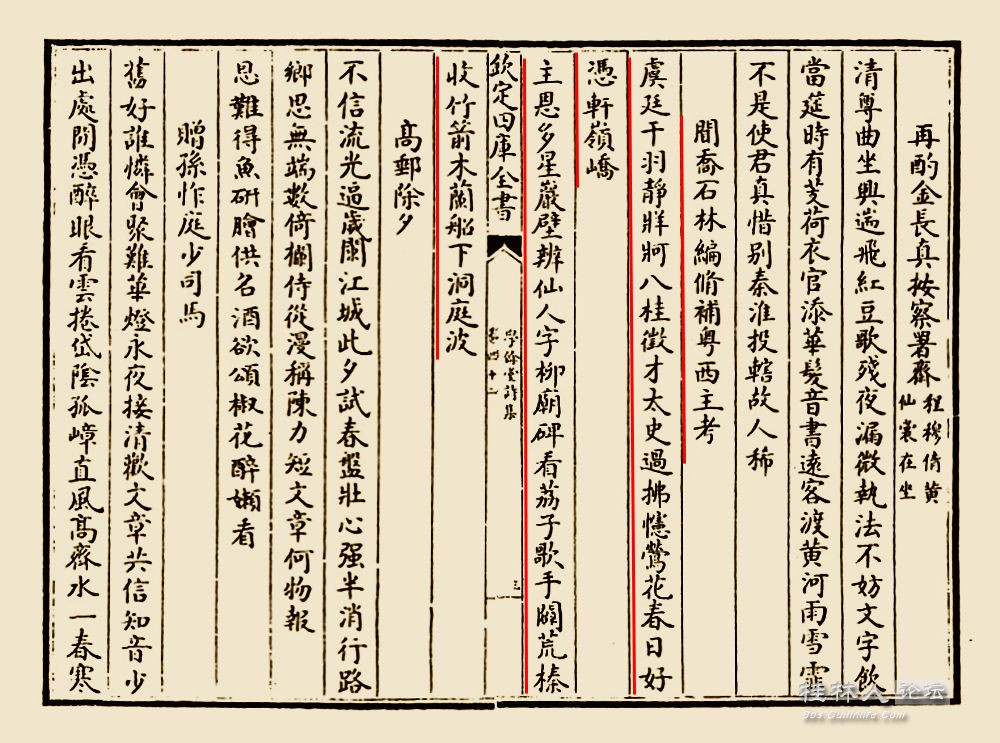 再酌金長真按察署齋程穆倩黄仙裳在坐
清尊曲坐興遄飛紅豆歌殘夜漏微執法不妨文字飲
當筵時有芰荷衣官添華髮音書遠客渡黄河雨雪霏
不是使君真惜别秦淮投轄故人稀
聞喬石林編脩補粤西主考
虞廷干羽靜牂牁八桂徵才太史過拂幰鶯花春日好
憑軒嶺嶠
主恩多星巖壁辨仙人字柳廟碑看荔子歌手闢荒榛
欽定四庫全書
學餘堂詩集
卷四十二
三
收竹箭木蘭船下洞庭波
高郵除夕
不信流光逼歲闌江城此夕試春盤壯心强半消行路
鄉思無端數倚欄侍從漫稱陳力短文章何物報
恩難得魚斫膾供名酒欲頌椒花醉嬾看
贈孫怍庭少司馬
舊好誰憐會聚難華燈永夜接清歡文章共信知音少
出處閒憑醉眼看雲捲岱陰孤嶂直風高齊水一春寒
桂林人论坛
bbs.Guilinlife.com